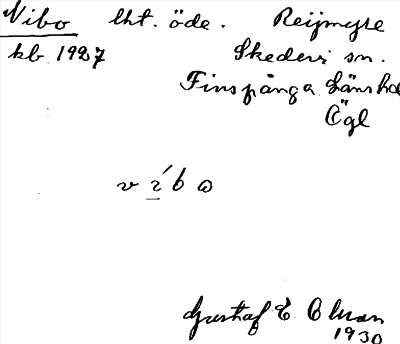 Vibo lht. öde. Reijmyre
kb 1927 Skedevi sn.
Finspånga Länshd
Ögl
v í b ω
Gustaf E. Olman
1930